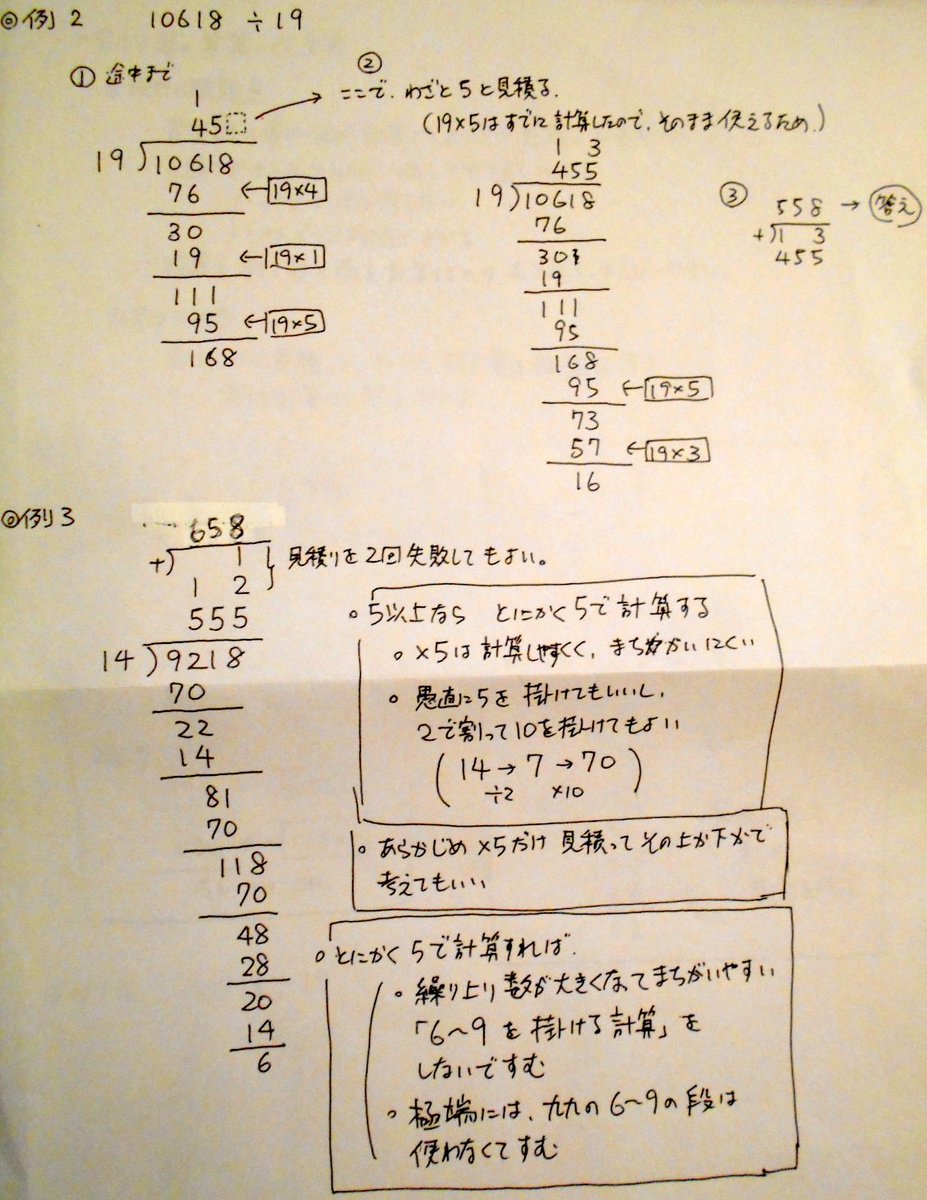 ◎例2 10618 ÷19
① 途中まで
1
45
19)10618
76 ←19×4
30
19 ←19×1
111
95 ←19×5
168
②
ここで、わざと5と見積る。
(19×5はすでに計算したので、そのまま使えるため.)
1 3
455
19)10618
76
303
19
111
95
168
95 ←19×5
73
57 ←19×3
16
③ 558 → 答え
+)1 3
455
◎例3
658
+) 1
1 2
見積りを2回失敗してもよい。
555
14)9218
70
22
14
81
70
118
70
48
28
20
14
6
○5以上なら とにかく5で計算する
○ ×5は計算しやすく、まちがいにくい
○ 愚直に5を掛けてもいいし、
2で割って10を掛けてもよい
(14→7→70)
÷2 ×10
○ あらかじめ×5だけ見積ってその上か下かで
考えてもいい
○とにかく5で計算すれば、
○ 繰り上り数が大きくなってまちがいやすい
「6～9を掛ける計算」を
しないですむ
○ 極端には、九九の6～9の段は
使わなくてすむ